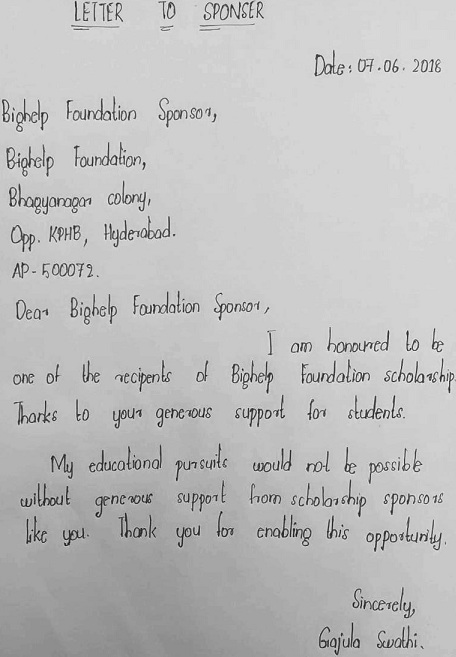 LETTER TO SPONSER
Date: 07.06.2018
Bighelp Foundation Sponsor,
Bighelp Foundation,
Bhagyanagar colony,
Opp. KPHB, Hyderabad.
AP-500072.
Dear Bighelp Foundation Sponsor,
I am honoured to be
one of the recipents of Bighelp Foundation scholarship.
Thanks to your generous support for students.
My educational pursuits would not be possible
without generous support from scholarship sponsors
like you. Thank you for enabling this opportunity.
Sincerely,
Gajula Swathi.